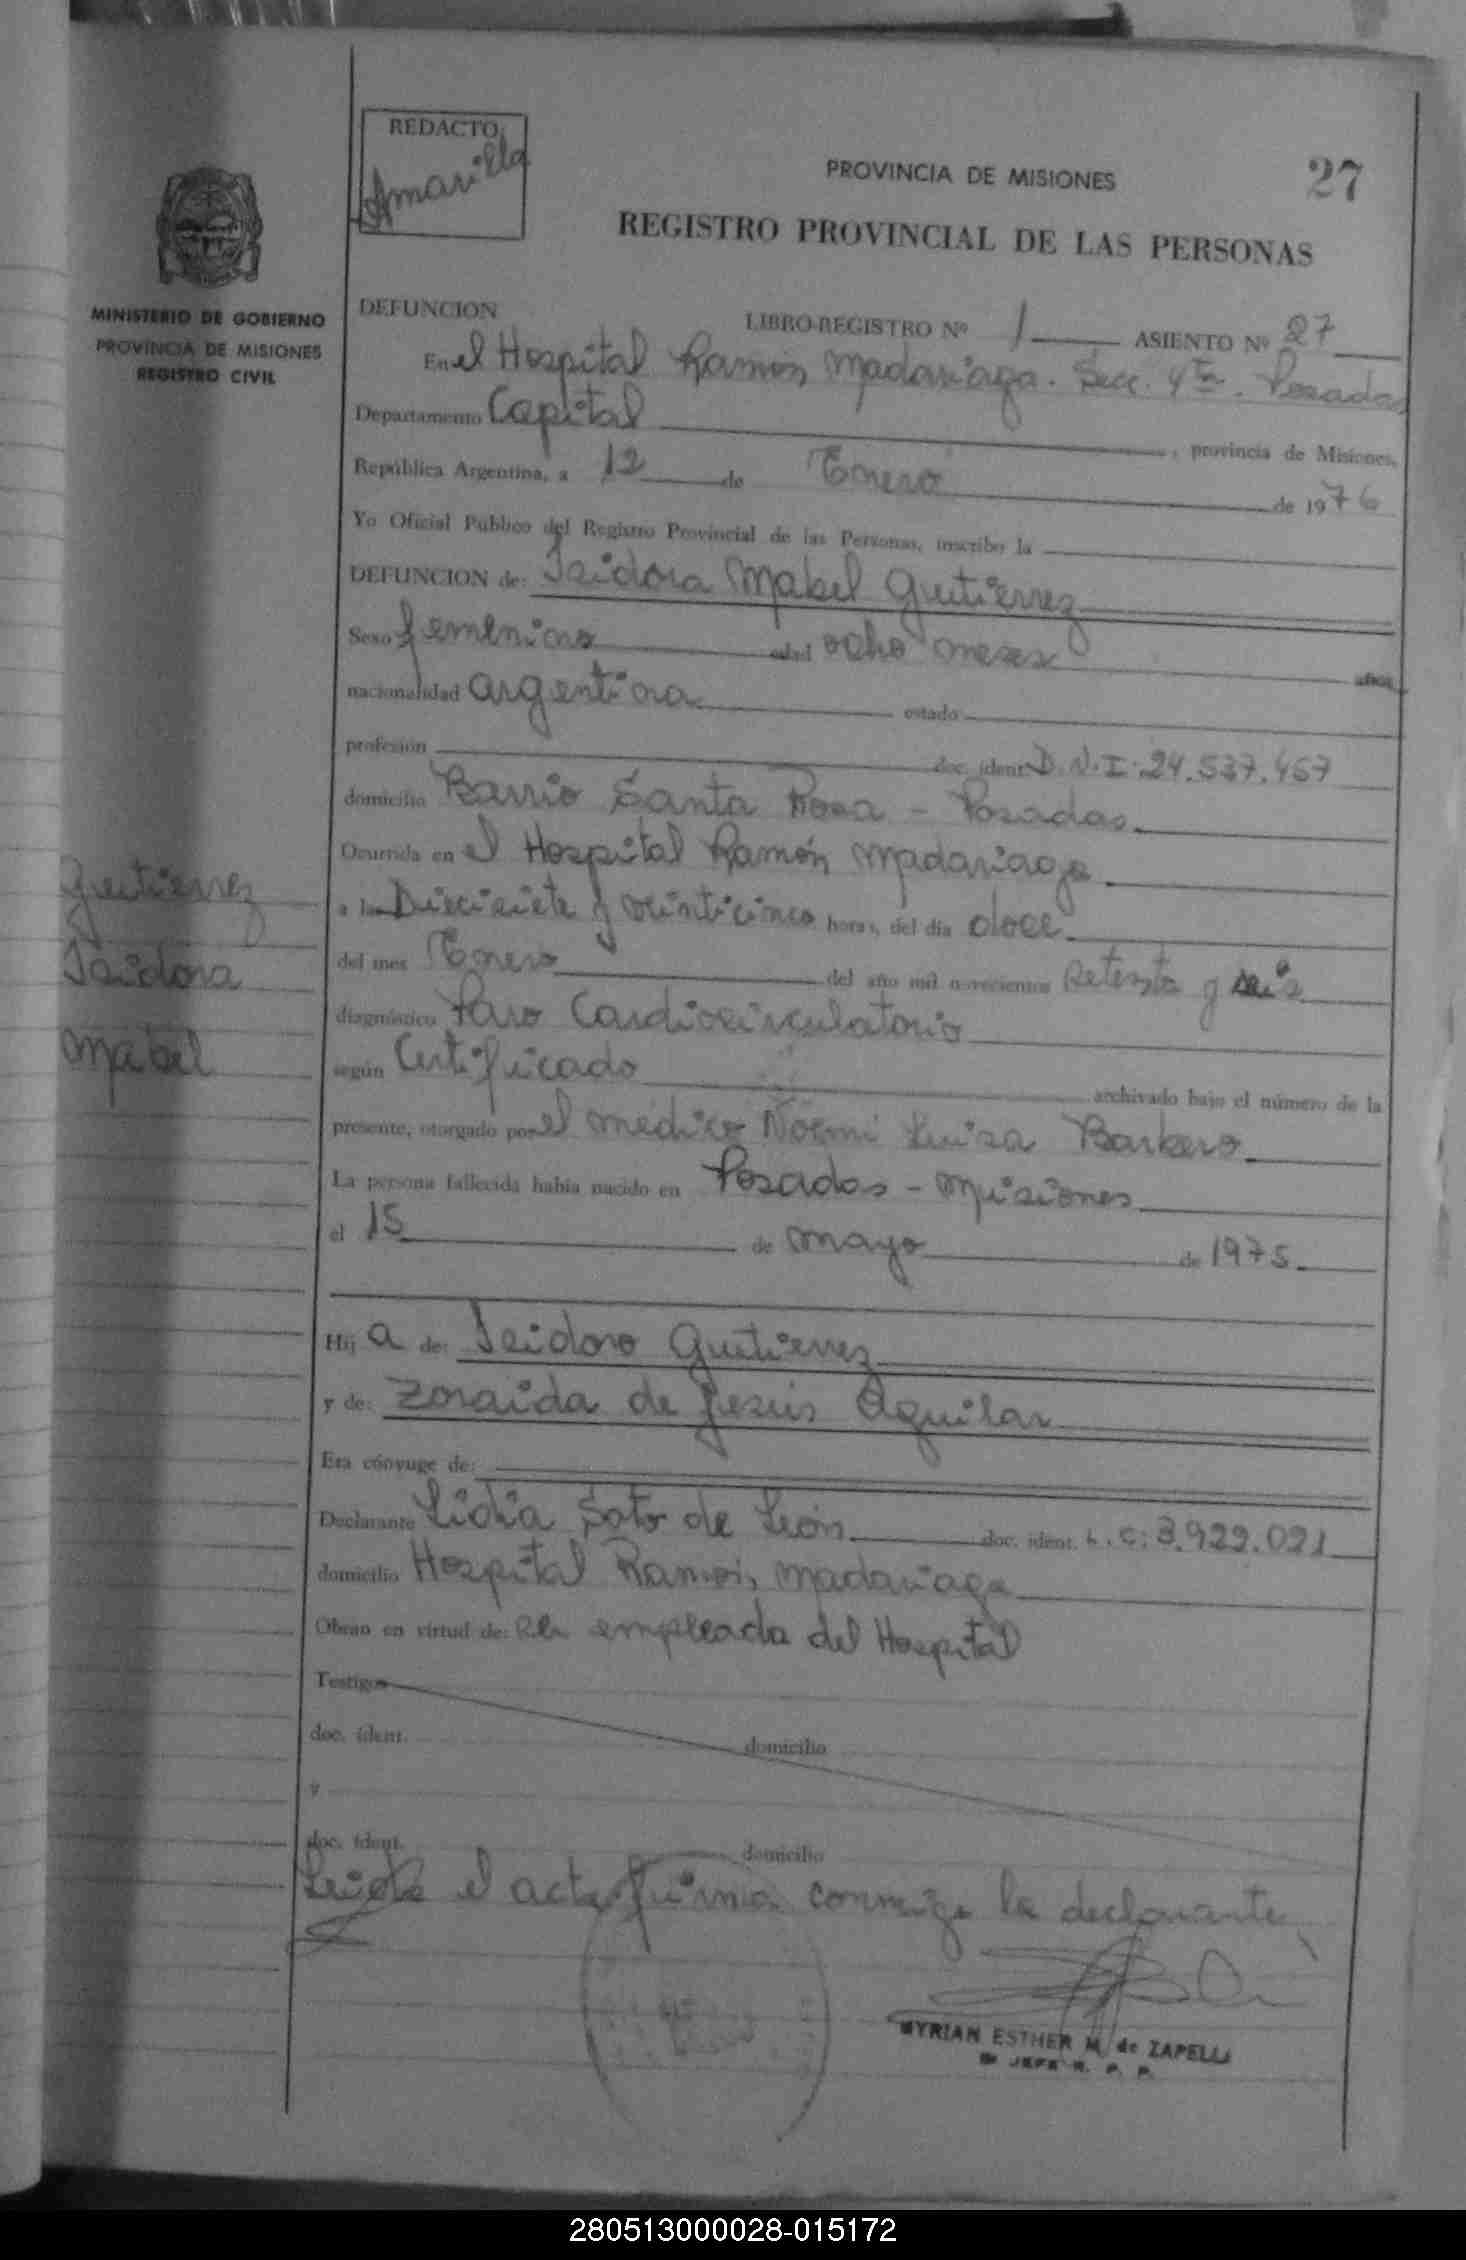 REDACTO
Amarilla
PROVINCIA DE MISIONES
27
REGISTRO PROVINCIAL DE LAS PERSONAS
MINISTERIO DE GOBIERNO
PROVINCIA DE MISIONES
REGISTRO CIVIL
DEFUNCION LIBRO-REGISTRO Nº 1 ASIENTO Nº 27
En el Hospital Ramón Madariaga. Secc. 4ta. Posadas
Departamento Capital, provincia de Misiones,
República Argentina, a 12 de Enero de 1976
Yo Oficial Público del Registro Provincial de las Personas, inscribo la
DEFUNCION de: Isidora Mabel Gutierrez
Sexo femenino edad ocho meses años,
nacionalidad argentina estado
profesión doc. ident. D.N.I. 24.537.457
domicilio Barrio Santa Rosa - Posadas
Ocurrida en el Hospital Ramón Madariaga
a las Diecisiete y veinticinco horas, del día doce
del mes Enero del año mil novecientos setenta y seis
diagnóstico Paro Cardiocirculatorio
según Certificado archivado bajo el número de la
presente, otorgado por el médico Noemi Luisa Barbero
La persona fallecida había nacido en Posadas - Misiones
el 15 de mayo de 1975
Gutierrez
Isidora
Mabel
Hij a de: Isidoro Gutierrez
y de: Zoraida de Jesús Aguilar
Era cónyuge de:
Declarante Lidia Soto de León doc. ident. L.C: 3.922.021
domicilio Hospital Ramón Madariaga
Obran en virtud de: ser empleada del Hospital
Testigos
doc. ident. domicilio
y
doc. ident. domicilio
Leída el acta firma conmigo la declarante
MYRIAN ESTHER M. de ZAPELLI
JEFE R. P. P.
280513000028-015172